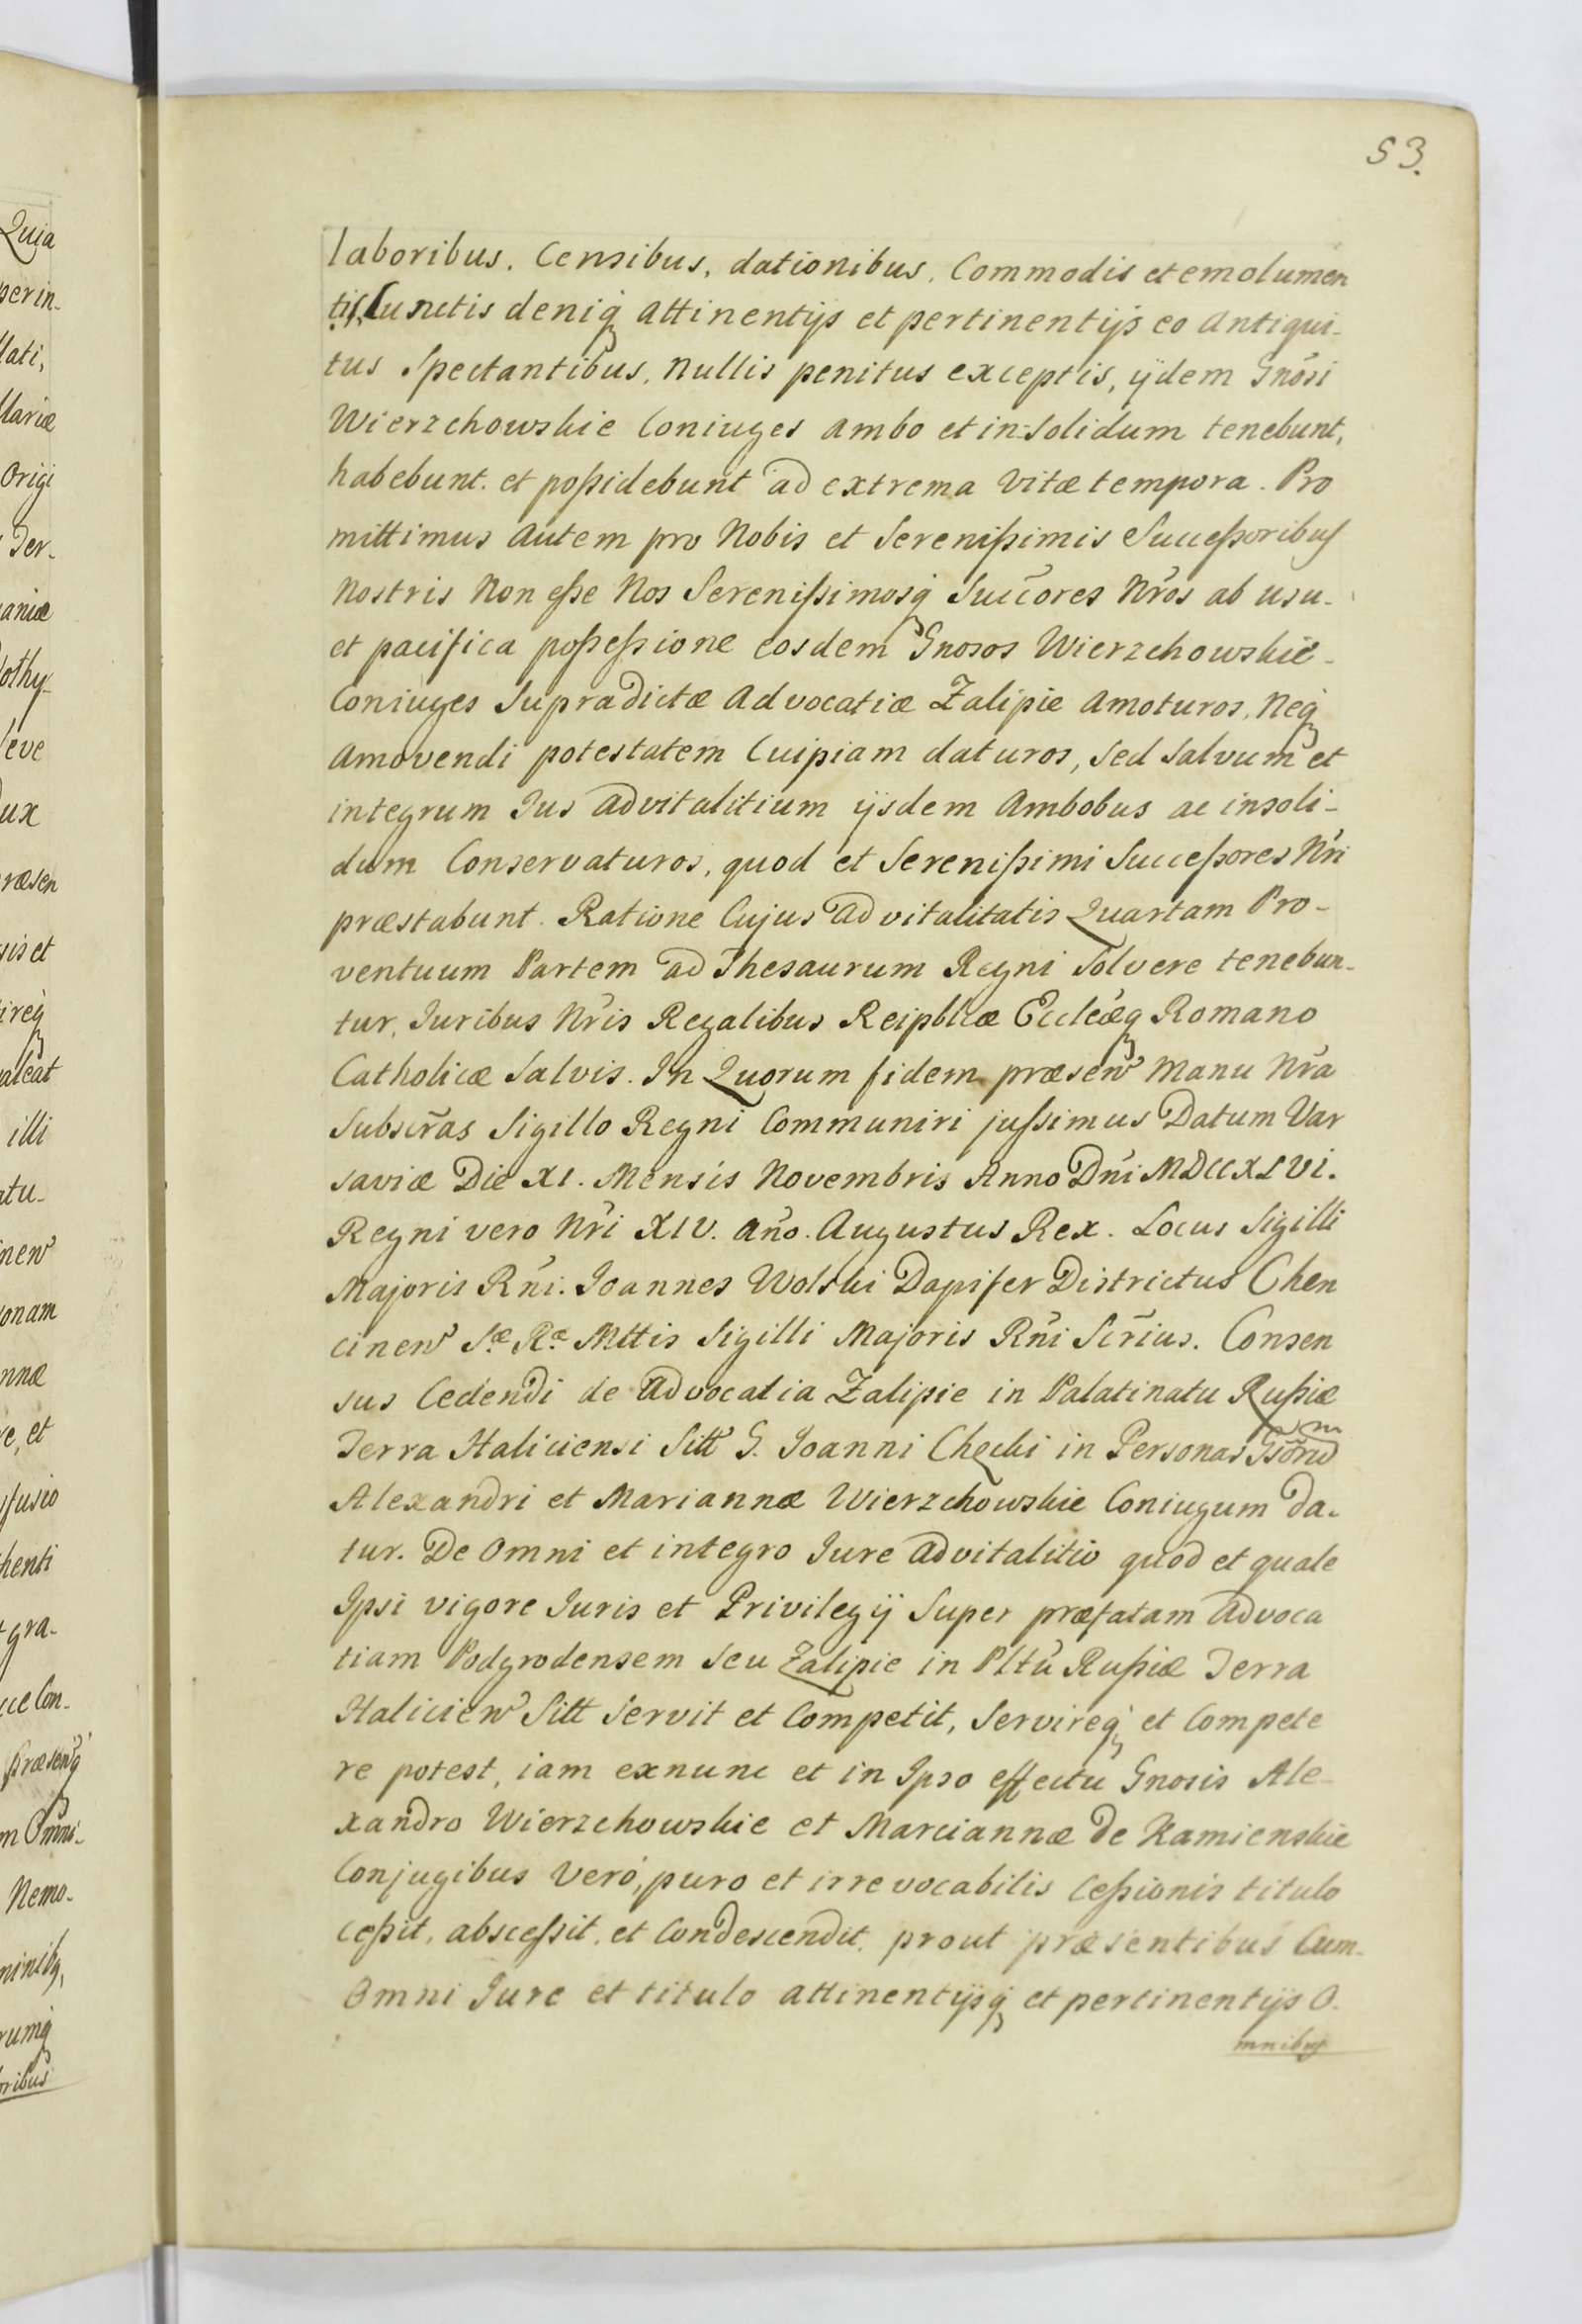 53.
laboribus. Censibus, dationibus. Commodis et emolumen
tis, Cunctis deniq̃ attinentijs et pertinentijs eo Antiqui-
tus Spectantibus, nullis penitus exceptis, ijdem Gnõsi
Wierzchowskie Coniuges ambo et in-solidum tenebunt,
habebunt. et poßidebunt ad extrema Vitæ tempora. Pro
mittimus autem pro Nobis et Serenißimis Succeßoribus
Nostris Non eße Nos Serenißimosq̃ Succ̃ores Nr̃os ab usu-
et pacifica poßeßione eosdem Gnosos Wierzchowskie-
Coniuges Supradictæ Advocatiæ Zalipie Amoturos, Neq̃
Amovendi potestatem Cuipiam daturos, Sed Salvum et
integrum Jus advitalitium ijsdem Ambobus ac insoli-
dum Conservaturos, quod et Serenißimi Succeßores Nr̃i
præstabunt. Ratione Cujus Advitalitatis Quartam Pro-
ventuum Partem ad Thesaurum Regni Solvere tenebun-
tur, Juribus Nr̃is Regalibus Reipblicæ Eccleæq̃ Romano
Catholicæ Salvis. In Quorum fidem præsen̄ Manu Nr̃a
Subscr̃as Sigillo Regni Communiri jußimus Datum Var
saviæ Die XI. Mensis Novembris Anno Dn̄i MDCCXLVI.
Regni vero Nr̃i XIV. an̄o. Augustus Rex. Locus Sigilli
Majoris Rn̄i. Joannes Wolski Dapifer Districtus Chen
cinen̄ Sæ Ræ Mttis Sigilli Majoris Rn̄i Scr̃ius. Consen
sus Cedendi de Advocatia Zalipie in Palatinatu Rußiæ
Terra Haliciensi Sitt̄ G. Joanni Chęcki in Personas Gsõrum
Alexandri et Mariannæ Wierzchowskie Coniugum da-
tur. De Omni et integro Jure advitalitio quod et quale
Ipsi vigore Juris et Privilegij Super præfatam Advoca
tiam Podgrodensem seu Zalipie in Pltũ Rußiæ Terra
Halicien̄ Sitt Servit et Competit, Servireq̃ et Compete
re potest, iam exnunc et in Ipso effectu Gnosis Ale-
xandro Wierzchowskie et Marciannæ de Kamienskie
Conjugibus Veró, puro et irrevocabilis Ceßionis titulo
ceßit, absceßit, et Condescendit, prout præsentibus Cum-
Omni Jure et titulo attinentijsq̃ et pertinentijs O.
mnibus
Quia
per in-
llati,
Mariæ
Origi
Ter-
aniæ
othy-
leve
ux
ræsen
sis et
ireq̃
aleat
illi
atu-
nen̄
onam
nnæ
re, et
fusio
henti
gra-
cce Con-
præsen̄q̃
m Omni-
Nemo-
minibq,
rumq̃
oribus